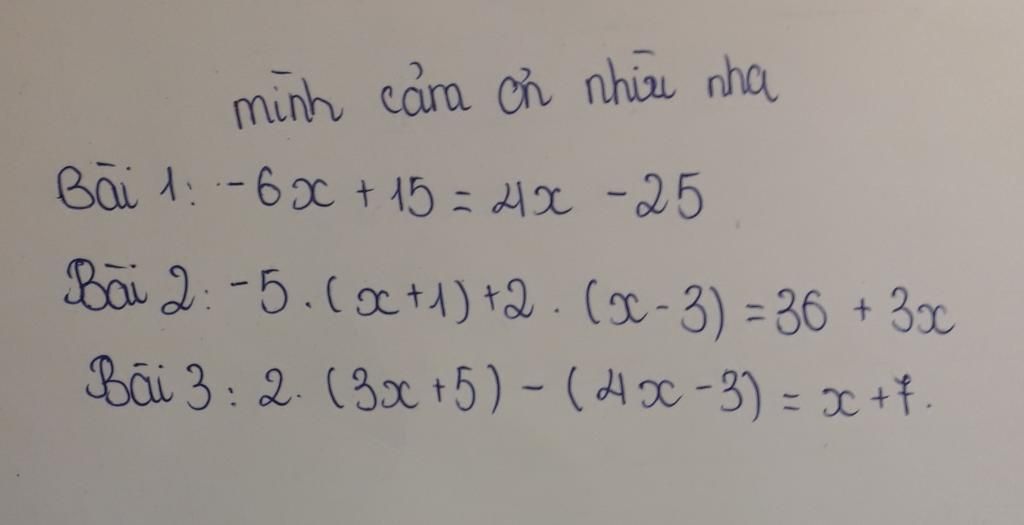 mình cảm ơn nhiều nha
Bài 1: -6x + 15 = 4x - 25
Bài 2: -5.(x+1)+2.(x-3)=36 + 3x
Bài 3: 2.(3x+5)-(4x-3)=x+7.